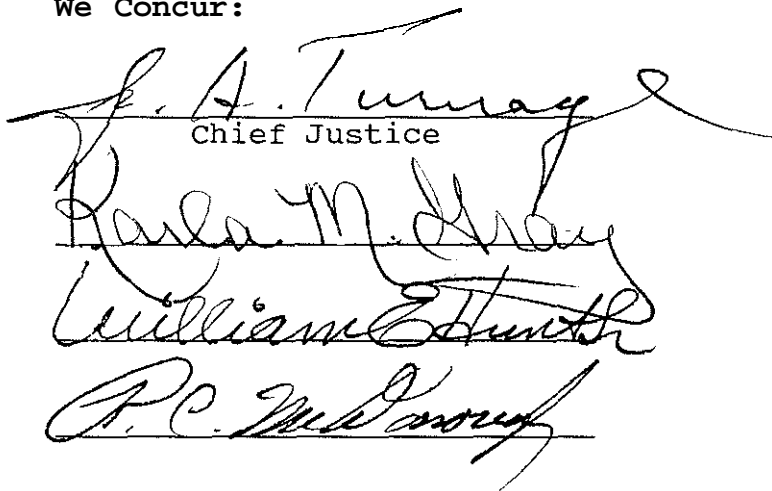 We Concur:
J. A. Turnage
Chief Justice
Karla M. Gray
William E Hunt Sr
R. C. McDonough